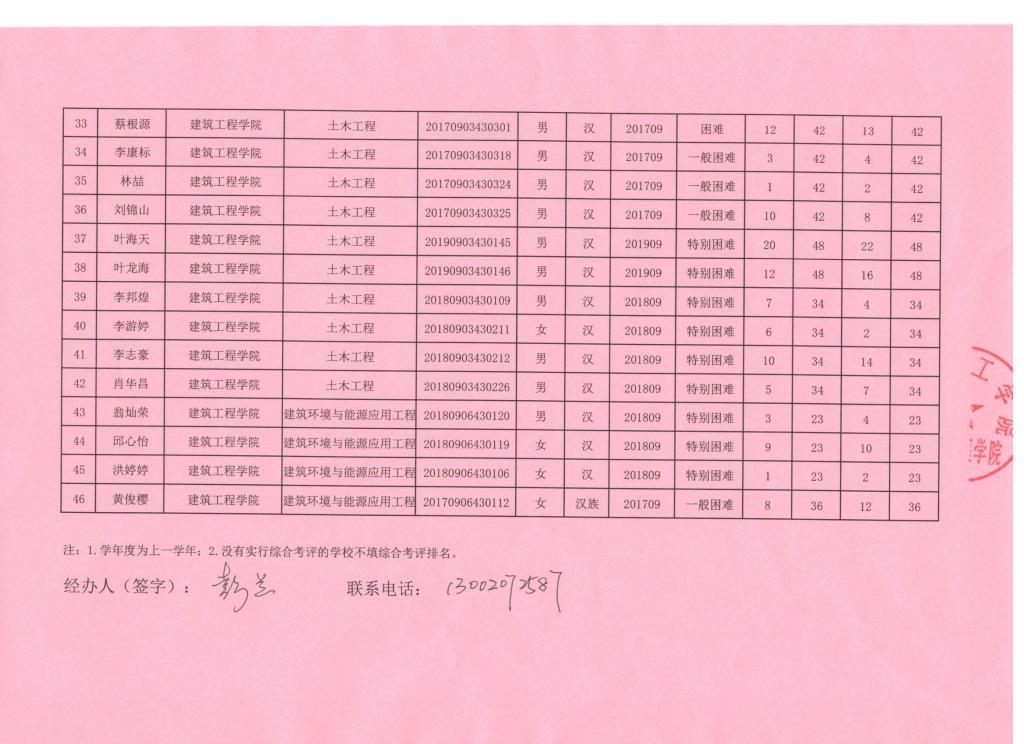 33 蔡根源 建筑工程学院 土木工程 20170903430301 男 汉 201709 困难 12 42 13 42
34 李康标 建筑工程学院 土木工程 20170903430318 男 汉 201709 一般困难 3 42 4 42
35 林喆 建筑工程学院 土木工程 20170903430324 男 汉 201709 一般困难 1 42 2 42
36 刘锦山 建筑工程学院 土木工程 20170903430325 男 汉 201709 一般困难 10 42 8 42
37 叶海天 建筑工程学院 土木工程 20190903430145 男 汉 201909 特别困难 20 48 22 48
38 叶龙海 建筑工程学院 土木工程 20190903430146 男 汉 201909 特别困难 12 48 16 48
39 李邦煌 建筑工程学院 土木工程 20180903430109 男 汉 201809 特别困难 7 34 4 34
40 李游婷 建筑工程学院 土木工程 20180903430211 女 汉 201809 特别困难 6 34 2 34
41 李志豪 建筑工程学院 土木工程 20180903430212 男 汉 201809 特别困难 10 34 14 34
42 肖华昌 建筑工程学院 土木工程 20180903430226 男 汉 201809 特别困难 5 34 7 34
43 翁灿荣 建筑工程学院 建筑环境与能源应用工程 20180906430120 男 汉 201809 特别困难 3 23 4 23
44 邱心怡 建筑工程学院 建筑环境与能源应用工程 20180906430119 女 汉 201809 特别困难 9 23 10 23
45 洪婷婷 建筑工程学院 建筑环境与能源应用工程 20180906430106 女 汉 201809 特别困难 1 23 2 23
46 黄俊樱 建筑工程学院 建筑环境与能源应用工程 20170906430112 女 汉族 201709 一般困难 8 36 12 36
注：1.学年度为上一学年；2.没有实行综合考评的学校不填综合考评排名。
经办人（签字）： 联系电话： 13002072587
工学院
学院